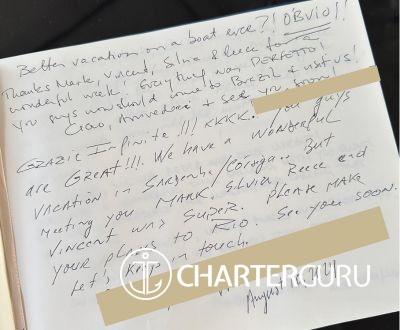 Better vacation on a boat ever?! ÓBVIO!!
Thanks Mark, Vincent, Silvia & Reece for a
wonderful week. Everything was PERFETTO!
You guys should come to Brazil & visit us!
Ciao, Arrivederci & see you soon!
GRAZIE Infinite!!! KKKK. You guys
are GREAT!!! We have a WONDERFUL
vacation in Sardenha/Córsega.. But
meeting you MARK, Silvia, Reece and
Vincent was SUPER. PLEASE MAKE
your plans to RIO. See you soon.
Let's keep in touch.
CHARTERGURU
August